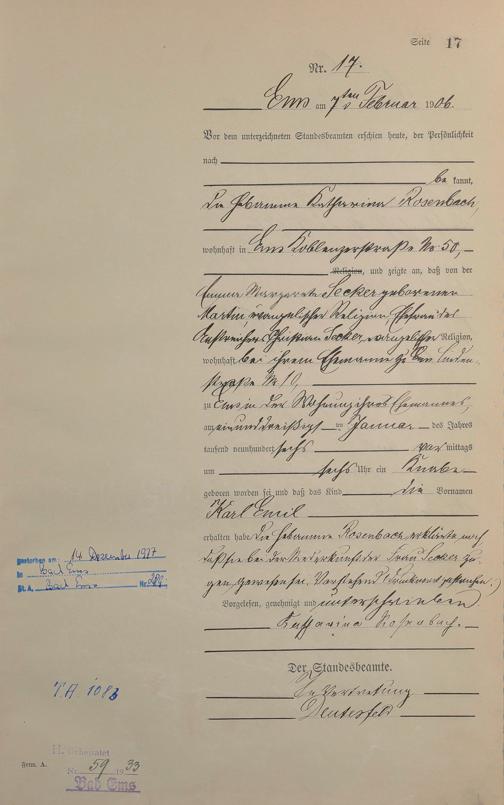 Seite 17
Nr. 17.
Ems am 7ten Februar 1906.
Vor dem unterzeichneten Standesbeamten erschien heute, der Persönlichkeit
nach
be kannt,
die Hebamme Katharina Rosenbach,
wohnhaft in Ems Koblenzerstraße No 50,
Religion, und zeigte an, daß von der
Emma Margarete Secker geborenen
Martin, evangelischer Religion, Ehefrau des
Anstreichers Christian Secker, evangelischer Religion,
wohnhaft bei ihrem Ehemanne zu Ems Linden-
straße No 10,
zu Ems in der Wohnung ihres Ehemannes,
am einunddreißigsten Januar des Jahres
tausend neunhundert sechs vor mittags
um sechs Uhr ein Knabe
geboren worden sei und daß das Kind die Vornamen
Karl Emil
erhalten habe. Die Hebamme Rosenbach erklärte noch
daß sie bei der Niederkunft der Frau Secker zu-
gen gewesen sei. Vorstehend Druckwort gestrichen.
Vorgelesen, genehmigt und unterschrieben
Katharina Rosenbach.
Der Standesbeamte.
In Vertretung
gestorben am: 14. Dezember 1977
in Bad Ems
St. A. Bad Ems Nr.
TA 1083
H. Geheiratet
Nr. 59 1933
Bad Ems
Form. A.